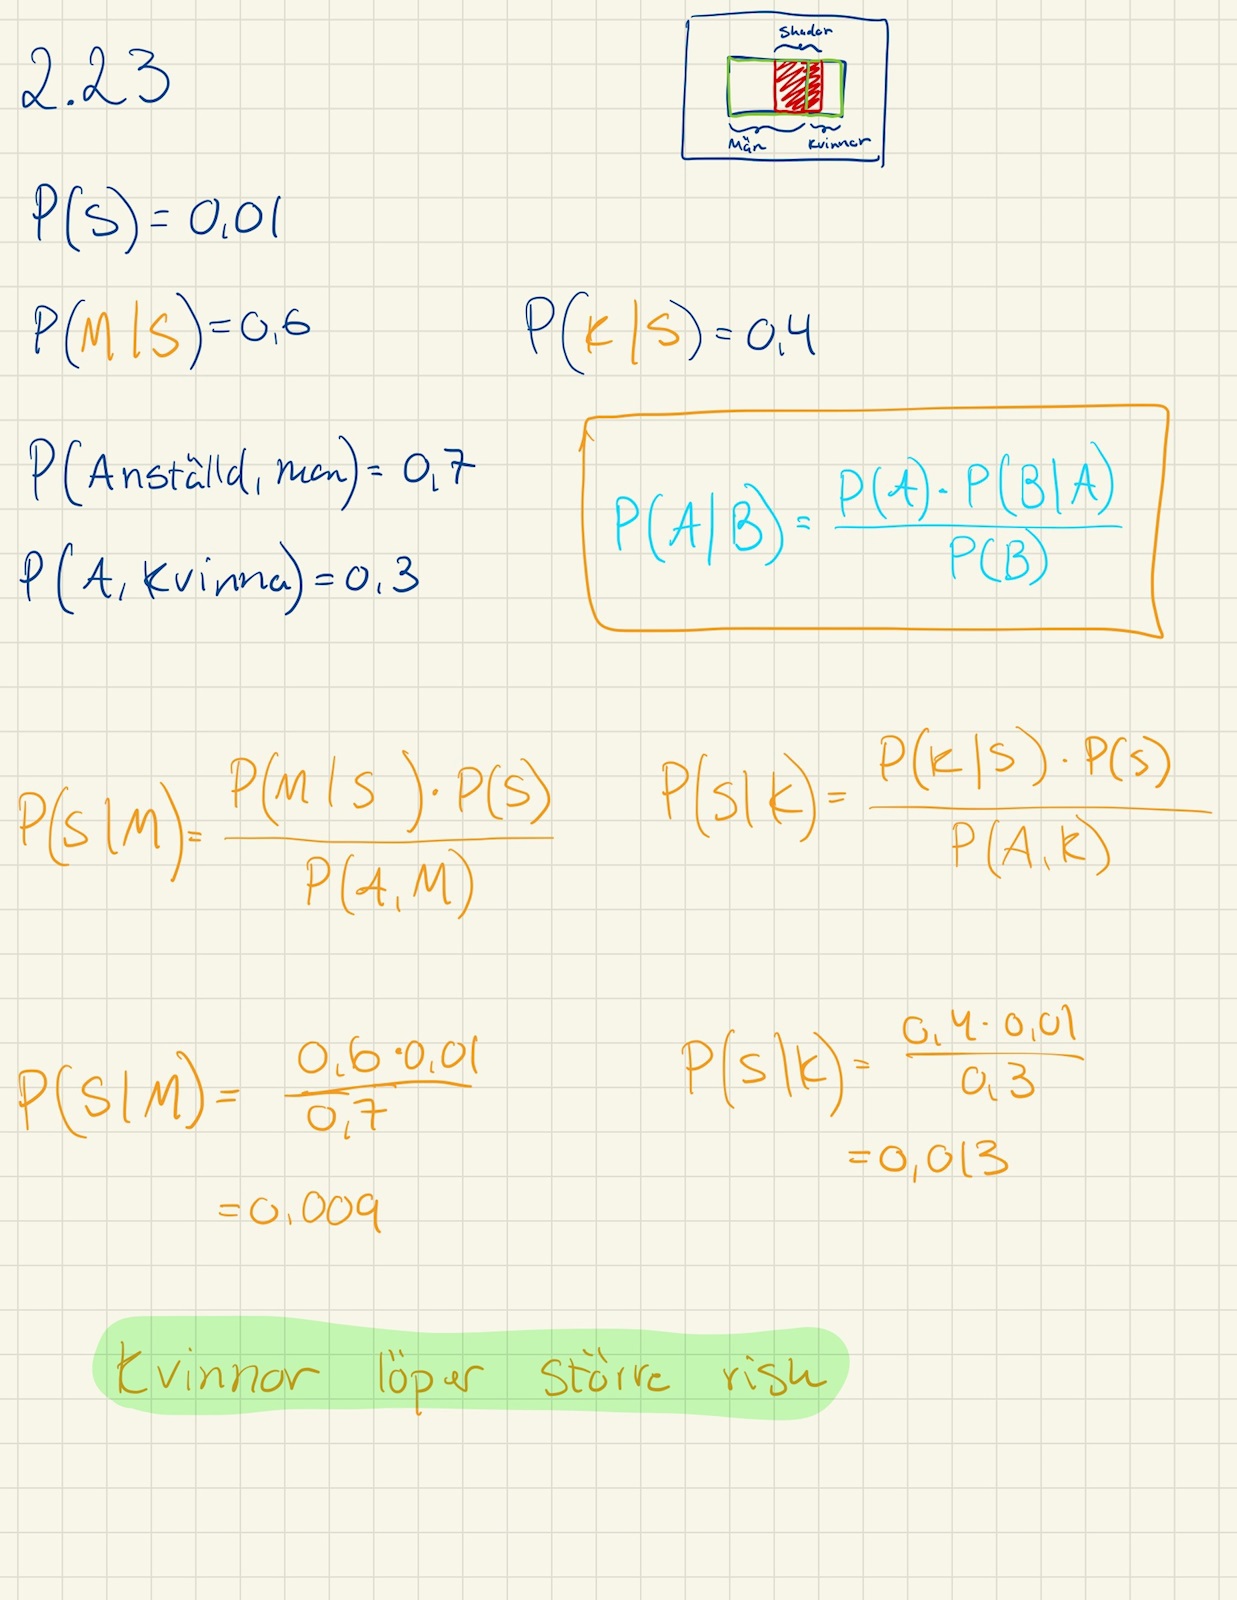 2.23
Skador
Män Kvinnor
P(S) = 0,01
P(M|S) = 0,6
P(K|S) = 0,4
P(Anställd, man) = 0,7
P(A, Kvinna) = 0,3
P(A|B) = P(A) · P(B|A) / P(B)
P(S|M) = P(M|S) · P(S) / P(A, M)
P(S|K) = P(K|S) · P(S) / P(A, K)
P(S|M) = 0,6 · 0,01 / 0,7
= 0,009
P(S|K) = 0,4 · 0,01 / 0,3
= 0,013
Kvinnor löper större risk